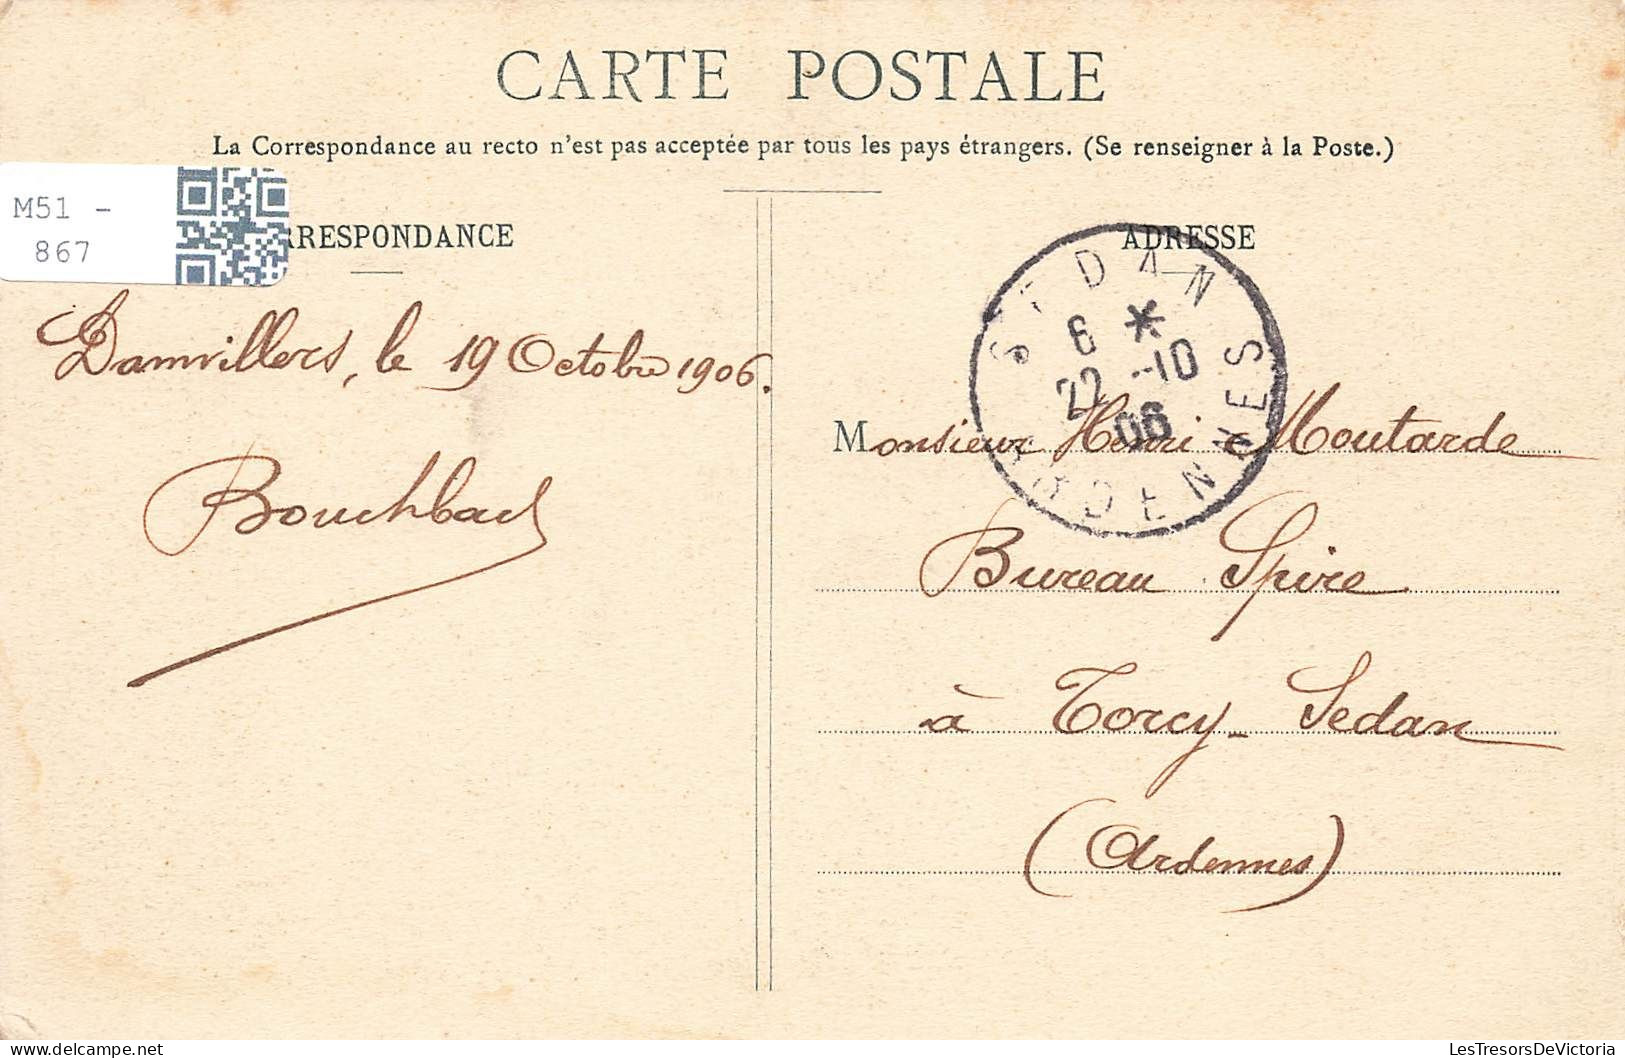 CARTE POSTALE
La Correspondance au recto n'est pas acceptée par tous les pays étrangers. (Se renseigner à la Poste.)
M51 -
867
RRESPONDANCE
Damvillers, le 19 Octobre 1906.
Bouchbach
ADRESSE
SEDAN
6 *
22 -10
06
ARDENNES
Monsieur Henri Moutarde
Bureau Spire
à Torcy-Sedan
(Ardennes)
LesTresorsDeVictoria